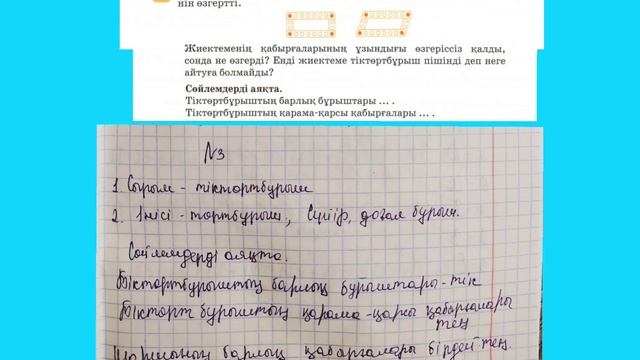 нін өзгертті.
Жиектеменің қабырғаларының ұзындығы өзгеріссіз қалды,
сонда не өзгерді? Енді жиектеме тіктөртбұрыш пішінді деп неге
айтуға болмайды?
Сөйлемдерді аяқта.
Тіктөртбұрыштың барлық бұрыштары ... .
Тіктөртбұрыштың қарама-қарсы қабырғалары ... .
№3
1. Сырым - тіктортбурыш
2. Інісі - тортбурыш, Сүйір, доғал бурыш.
Сөйлемдерді аяқта.
Тіктортбурыштың барлық бурыштары - тік
Тікторт бурыштың қарама-қарсы қабырғалары
тең
барлық қабарғалары бірдей тең.